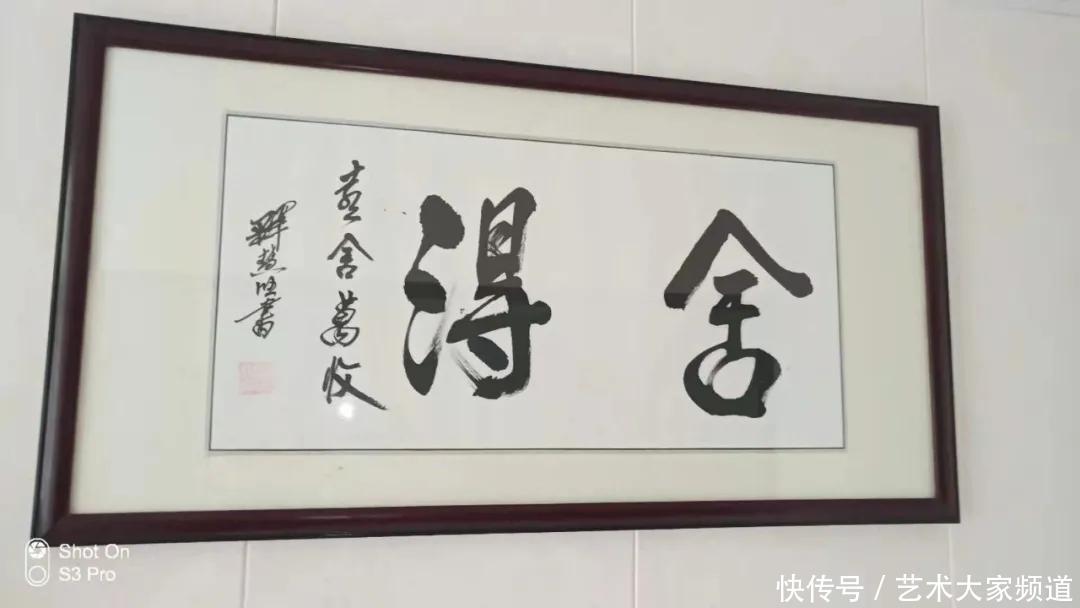 舍得
舍萬收
釋慧書
Shot On
S3 Pro
快传号 / 艺术大家频道